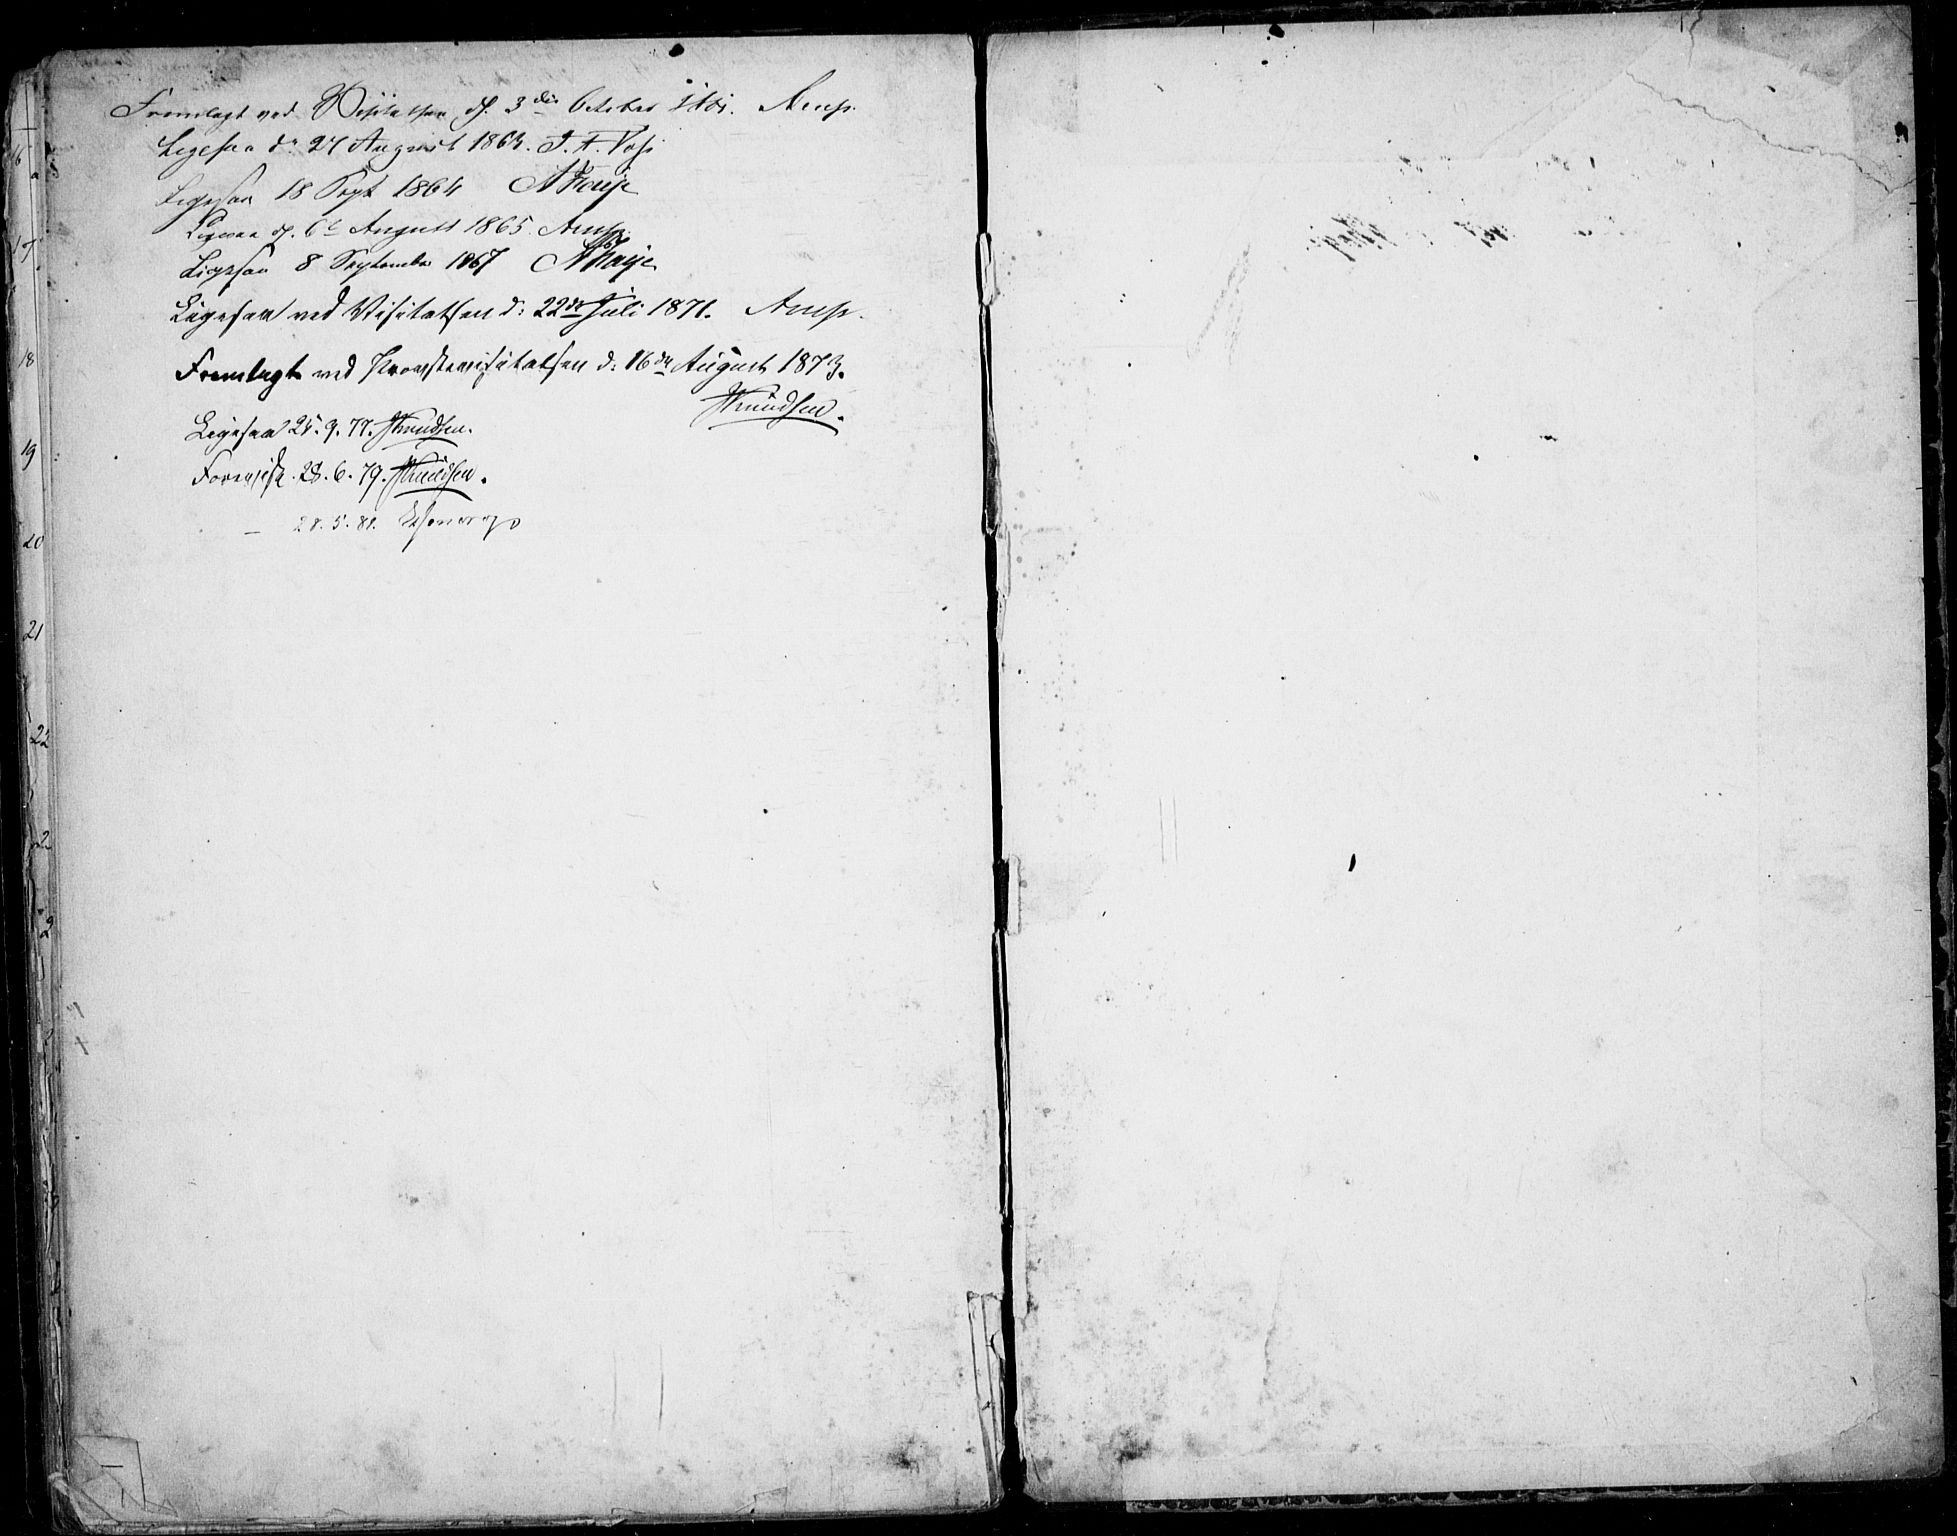 Fremlagt ved Visitatsen d. 3die October 1861. Arup.
Ligesaa d: 27 August 1863. J. A.
Ligesaa 18 Sept 1864
Ligesaa d. 6te August 1865. Arup.
Ligesaa 8 September 1867
Ligesaa ved Visitatsen d: 22de Juli 1871. Arup.
Fremlagt ved Provstevisitatsen d: 16de August 1873.
JKnudsen.
Ligesaa 25.9.77. JKnudsen.
Forevist 28.6.79. JKnudsen.
— 28.5.81.
16
17
18
19
20
21
22
2
2